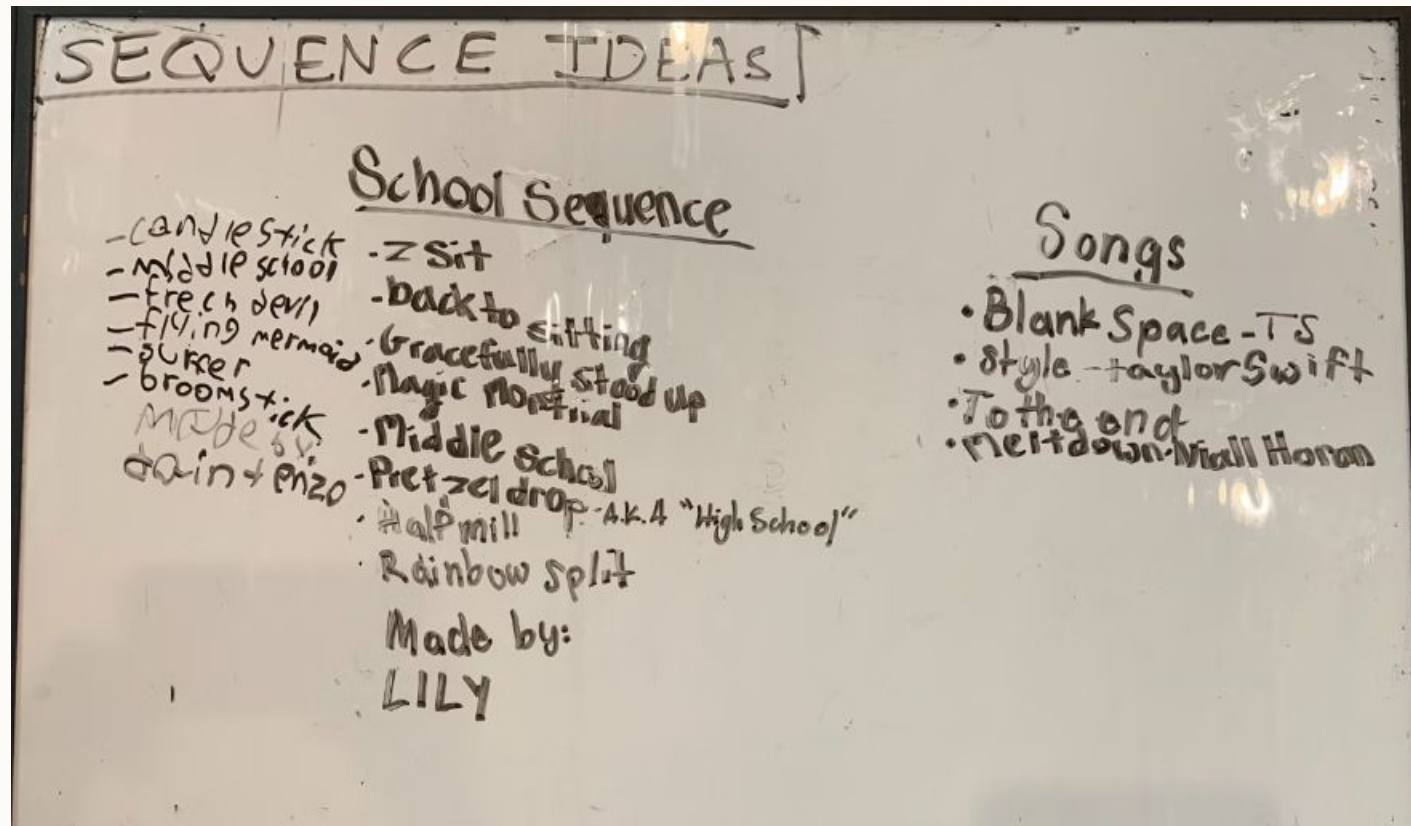 SEQUENCE IDEAS
School Sequence
- candlestick
- middle school
- frech devil
- flying mermaid
- surfer
- broomstick
Made by
enzo
- Z Sit
- back to sitting
- Gracefully stood up
- Magic
- Middle School
- Pretzel drop - A.K.A "High School"
- Half mill
- Rainbow split
Made by:
LILY
Songs
• Blank Space - TS
• Style - taylor Swift
• To the end
• Meltdown - Niall Horan